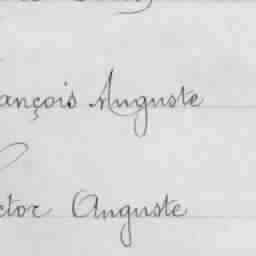 ançois Auguste
ctor Auguste